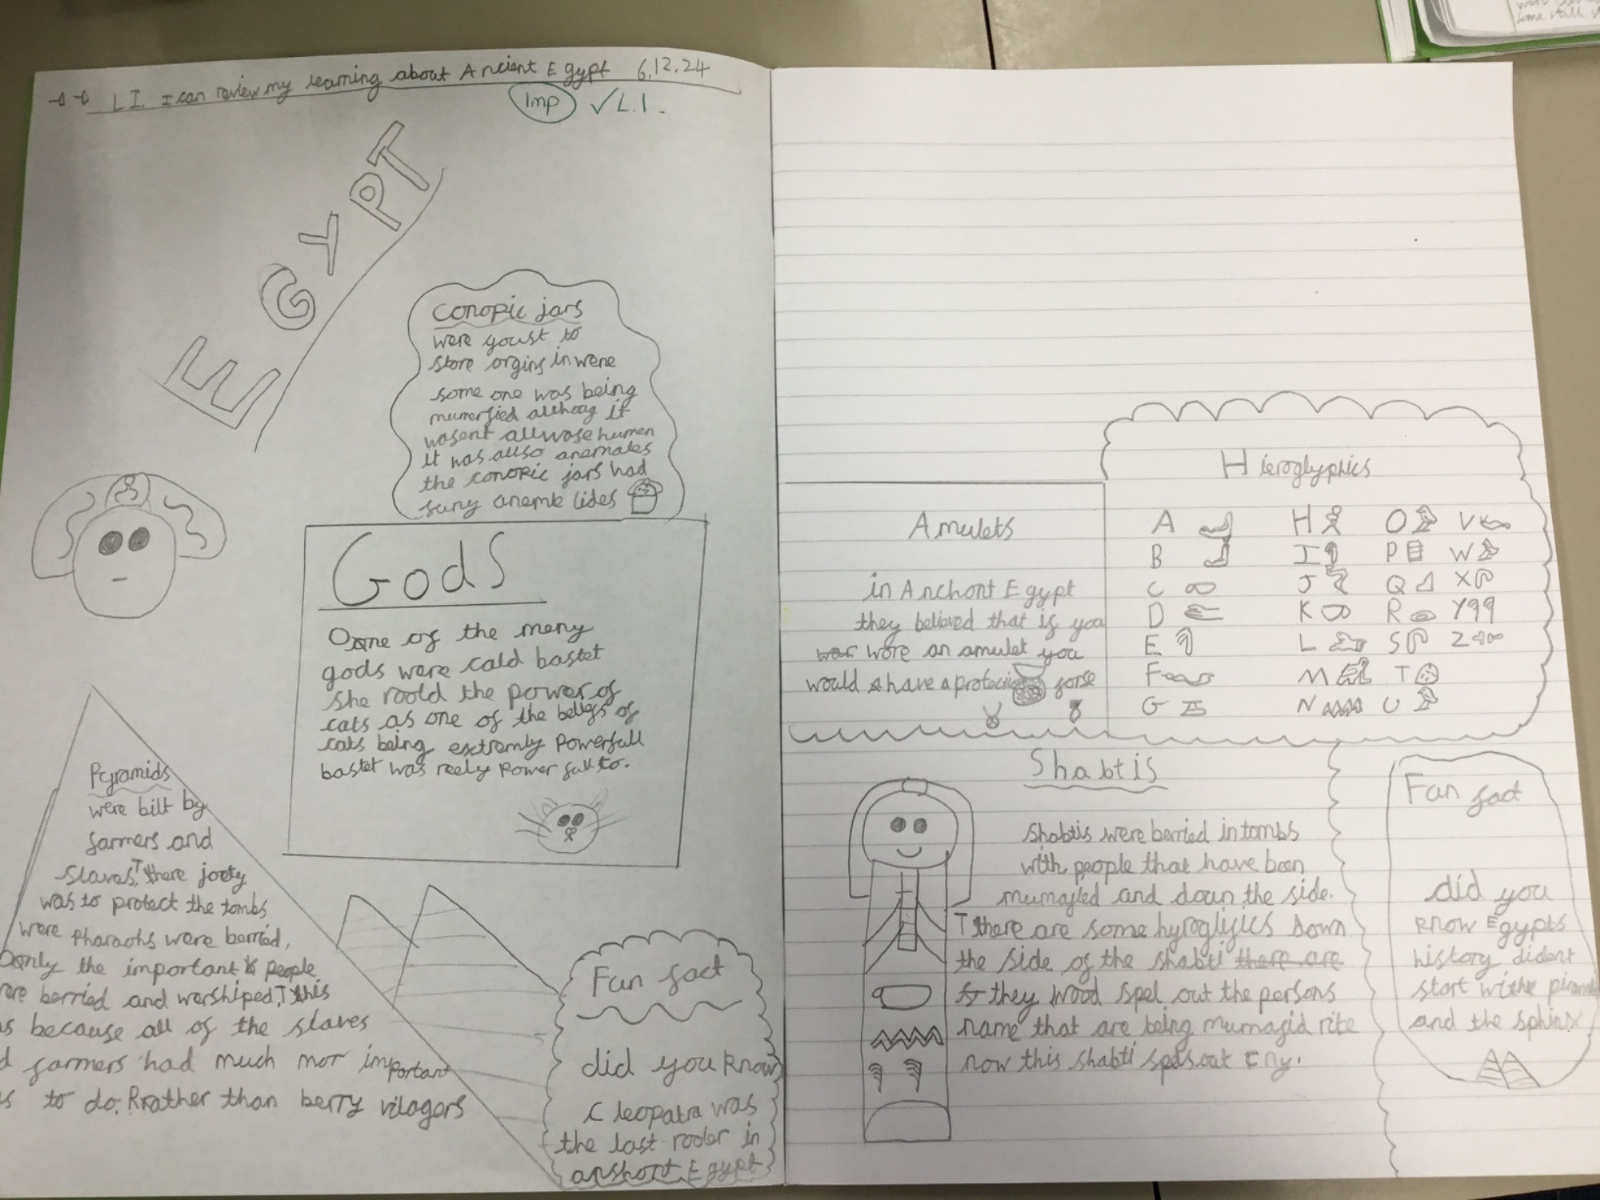 L I. I can review my learning about Ancient Egypt 6.12.24
Imp ✓L.I.
EGYPT
Conopic jars
were youst to
store orgins in wene
some one was being
mumerfied althoug it
wasent allwase human
it was allso anemales
the conopic jars had
funy anemle lides
Gods
Oone of the meny
gods were cald bastet
She roold the power of
cats as one of the beliefs of
cats being extremly powerfull
bastet was reely power full to.
Pyramids
were bilt by
farmers and
slaves, There jooty
was to protect the tombs
were Pharaohs were berried,
Oonly the important people
were berried and worshiped, This
as because all of the slaves
d farmers had much mor important
s to do. Rrather than berry vilagers
Fun fact
did you know
Cleopatra was
the last rooler in
anshont Egypt
Amulets
in Anchont Egypt
they believed that if you
war wore an amulet you
would have a protection forse
Hieroglyphics
A H O V
B I P W
C J Q X
D K R Y
E L S Z
F M T
G N U
Shabtis
Shabtis were berried in tombs
with people that have been
mumafied and down the side.
There are some hyroglyfics Down
the side of the shabti there are
they Wood spel out the persons
name that are being mumafid rite
now this shabti spels out Eny.
Fun fact
did you
know Egypts
history dident
start withe
and the sphinx